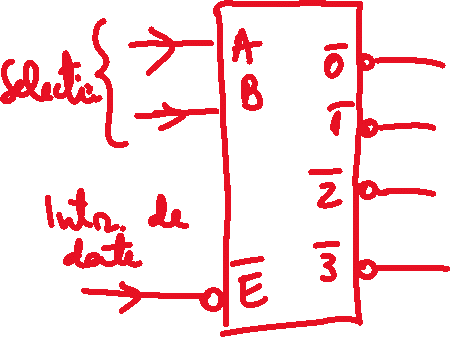 Selectie
A
B
Intr. de
date
E̅
0̅
1̅
2̅
3̅